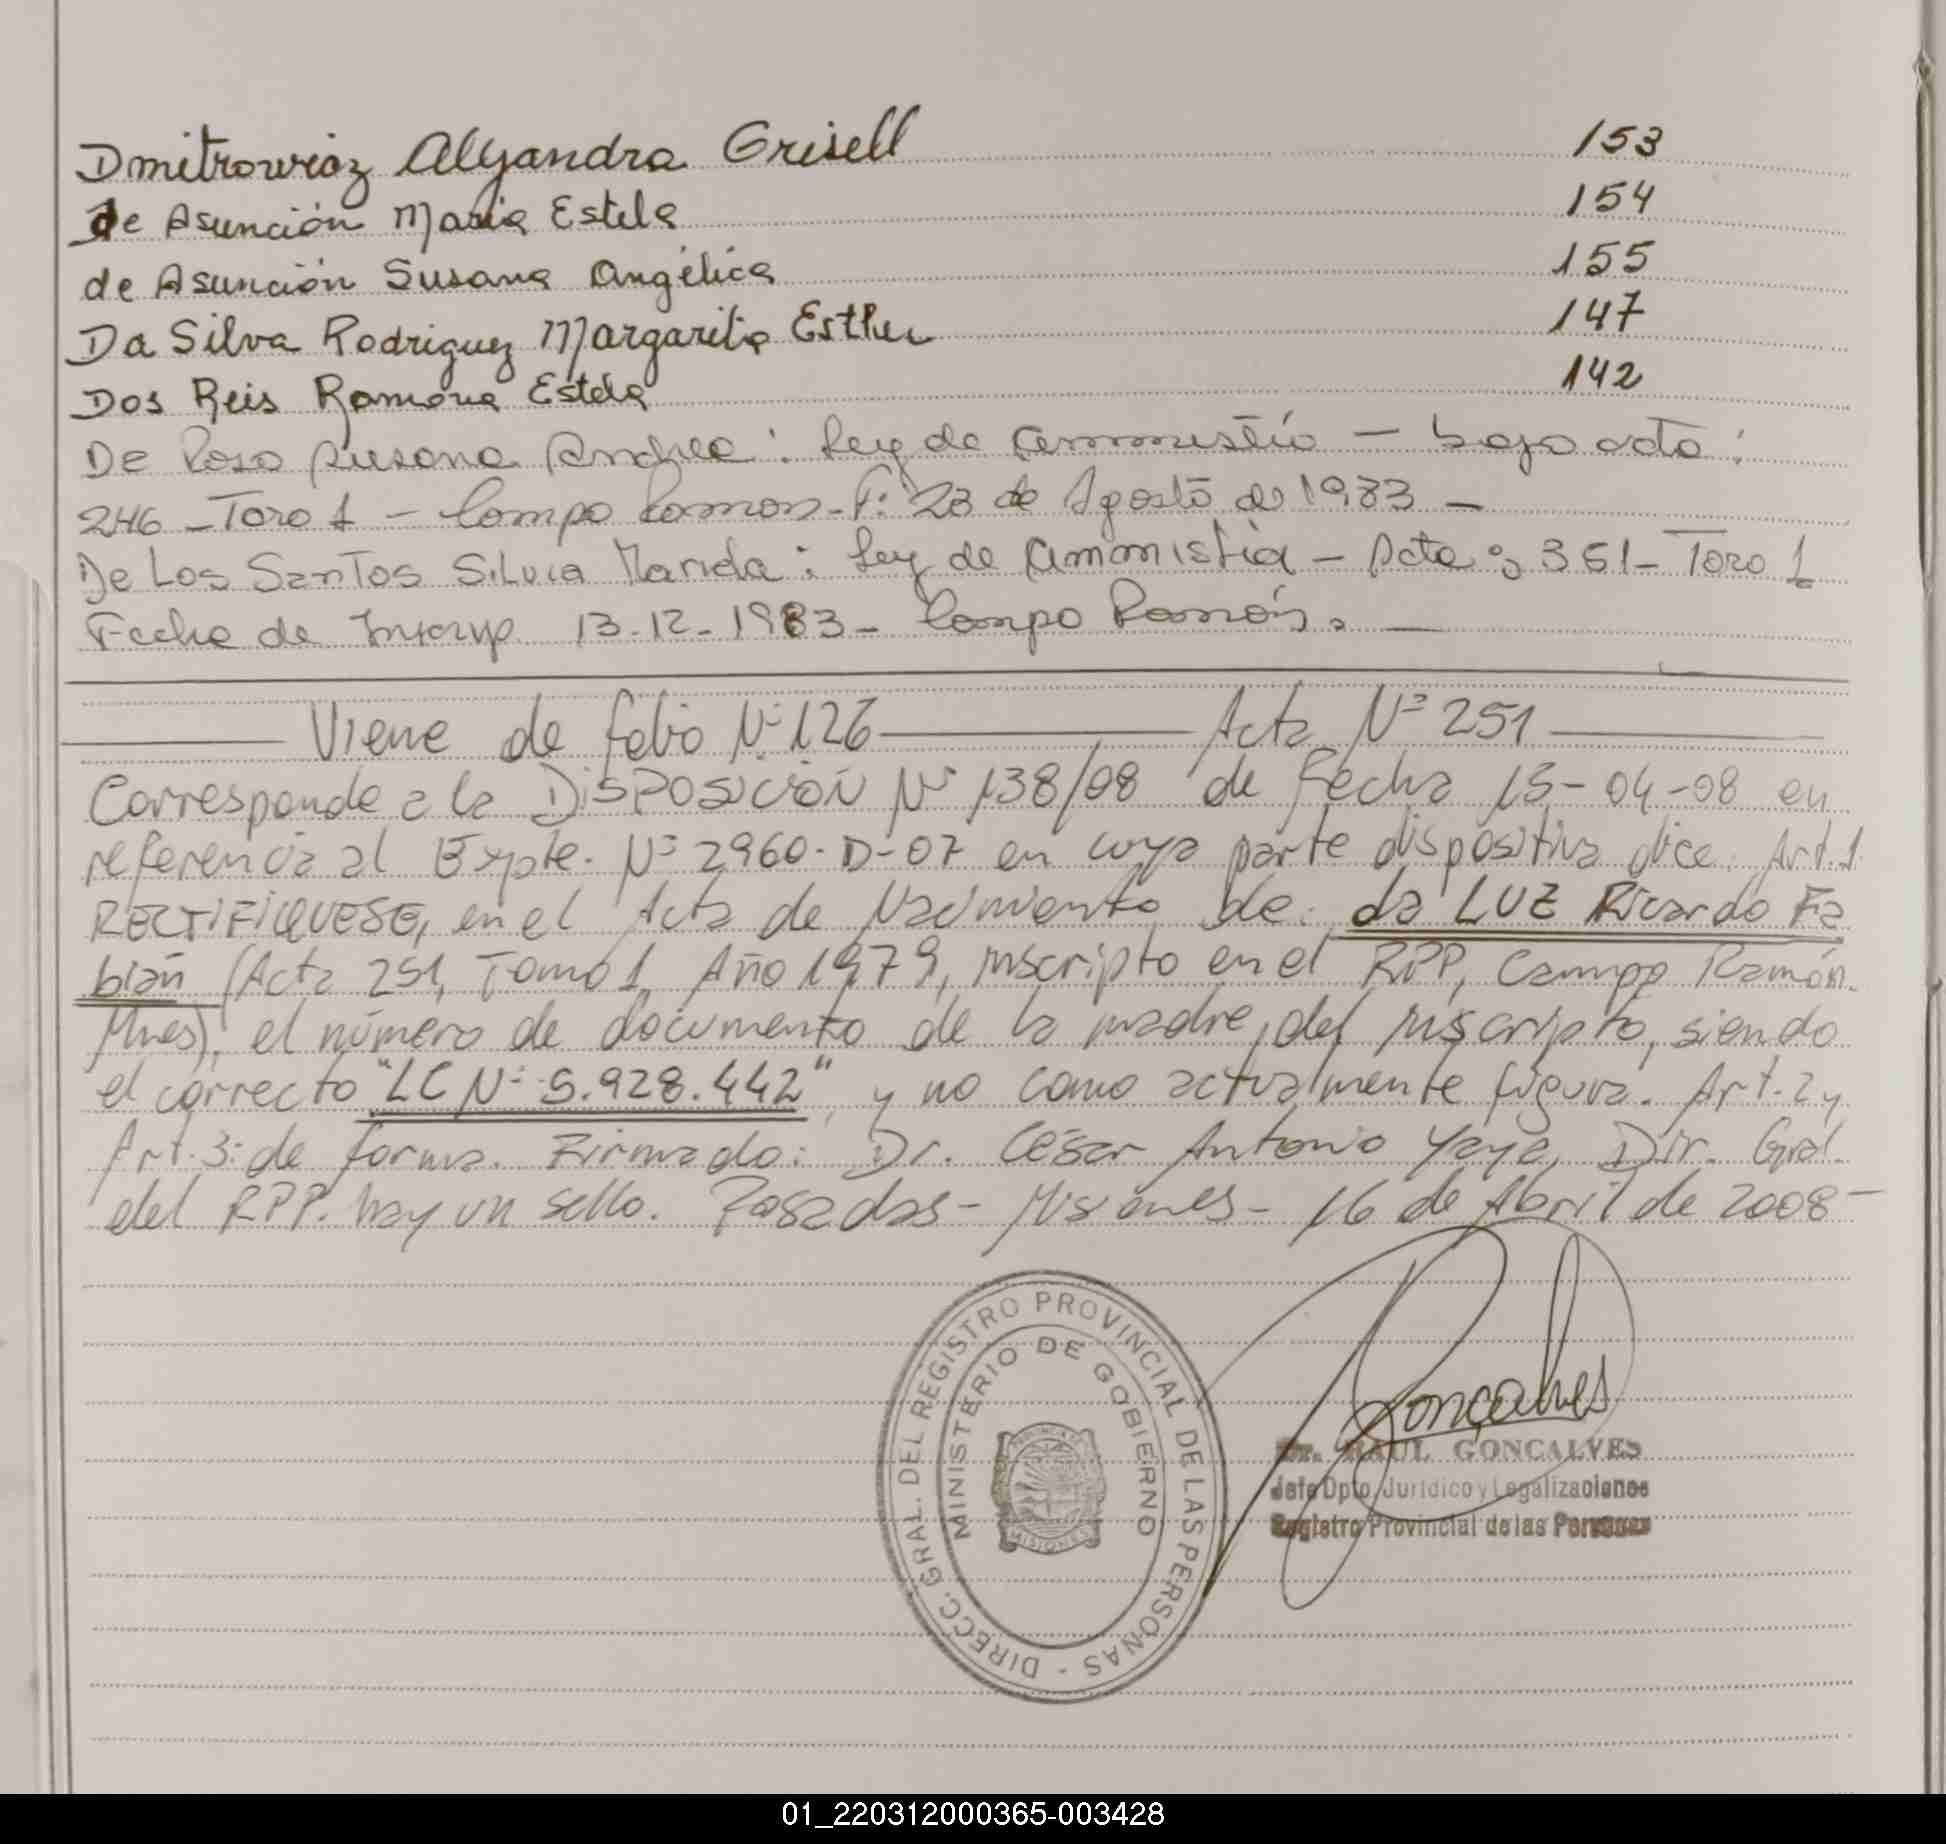 Dmitrowicz Alejandra Grisell 153
de Asunción Maria Estela 154
de Asunción Susana Angélica 155
Da Silva Rodriguez Margarita Esther 147
Dos Reis Ramona Estela 142
De Rosa Susana Andrea: Ley de Ammistía - bajo acta:
246 - Tomo 1 - Campo Ramon - F: 23 de Agosto de 1983 -
De Los Santos Silvia Mariela: Ley de Ammistia - Acta: 351 - Tomo 1
Fecha de Inscrip. 13-12-1983 - Campo Ramón. -
Viene de folio Nº 126 Acta Nº 251
Corresponde a la DISPOSICIÓN Nº 138/08 de Fecha 15-04-08 en
referencia al Expte. Nº 2960-D-07 en cuya parte dispositiva dice: Art. 1
RECTIFIQUESE, en el Acta de Nacimiento de: da LUZ Ricardo Fa
bián (Acta 251, Tomo 1, Año 1979, inscripto en el RPP, Campo Ramón.
Mnes), el número de documento de la madre del inscripto, siendo
el correcto "LC Nº 5.928.442", y no como actualmente figura. Art. 2 y
Art. 3: de forma. Firmado: Dr. César Antonio Yaya, Dir. Gral.
del RPP. hay un sello. Posadas - Misiones - 16 de Abril de 2008 -
DIRECC. GRAL. DEL REGISTRO PROVINCIAL DE LAS PERSONAS -
MINISTERIO DE GOBIERNO
MISIONES
Gonçalves
Dr. RAUL GONCALVES
Jefe Dpto. Jurídico y Legalizaciones
Registro Provincial de las Personas
01_220312000365-003428